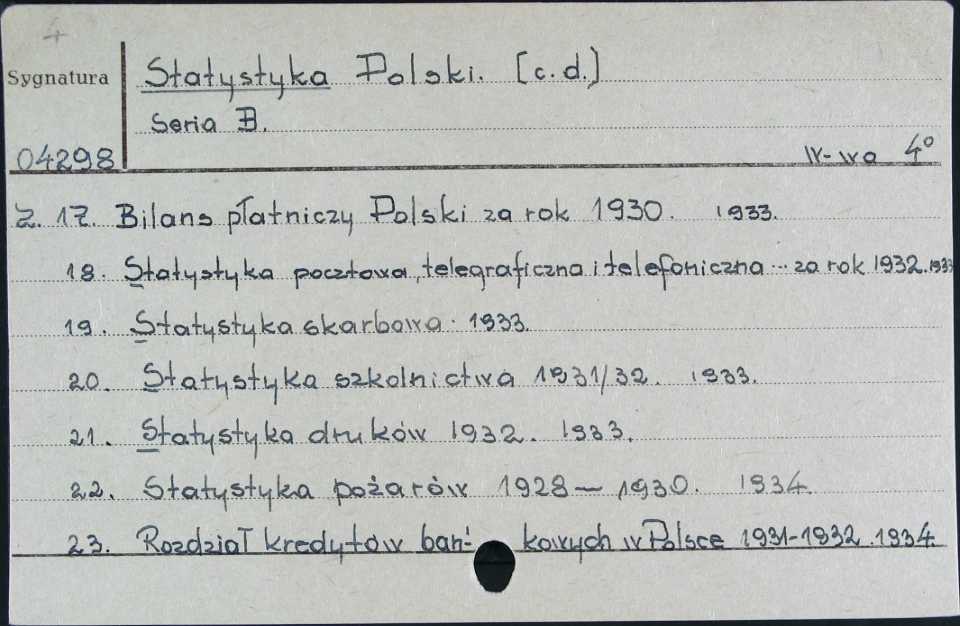 4
Sygnatura
Statystyka Polski. [c.d.]
Seria B.
04298
W-wa 4°
Z. 17. Bilans płatniczy Polski za rok 1930. 1933.
18. Statystyka pocztowa, telegraficzna i telefoniczna... za rok 1932. 1933
19. Statystyka skarbowa. 1933.
20. Statystyka szkolnictwa 1931/32. 1933.
21. Statystyka druków 1932. 1933.
22. Statystyka pożarów 1928 — 1930. 1934.
23. Rozdział kredytów ban- kowych w Polsce 1931-1932. 1934.